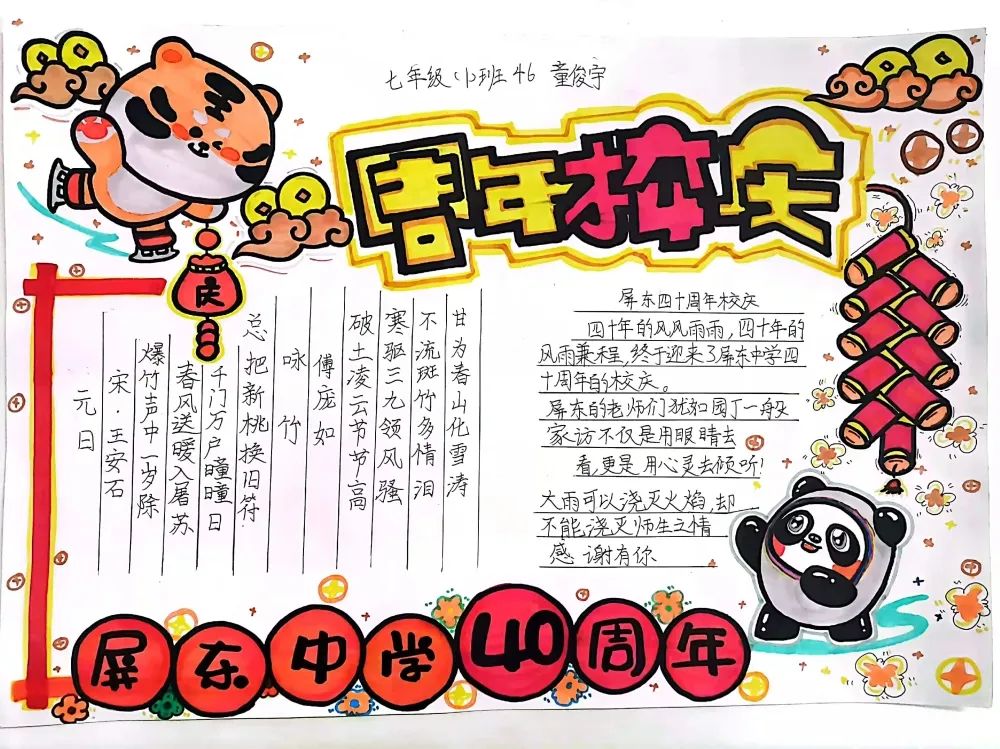 七年级(1)班46 童俊宇
周年校庆
庆
元日
宋·王安石
爆竹声中一岁除
春风送暖入屠苏
千门万户曈曈日
总把新桃换旧符
咏竹
傅庞如
破土凌云节节高
寒驱三九领风骚
不流斑竹多情泪
甘为春山化雪涛
屏东四十周年校庆
四十年的风风雨雨,四十年的
风雨兼程,终于迎来了屏东中学四
十周年的校庆。
屏东的老师们犹如园丁一般
家访不仅是用眼睛去
看,更是用心灵去倾听!
大雨可以浇灭火焰,却
不能浇灭师生之情
感谢有你
屏东中学40周年